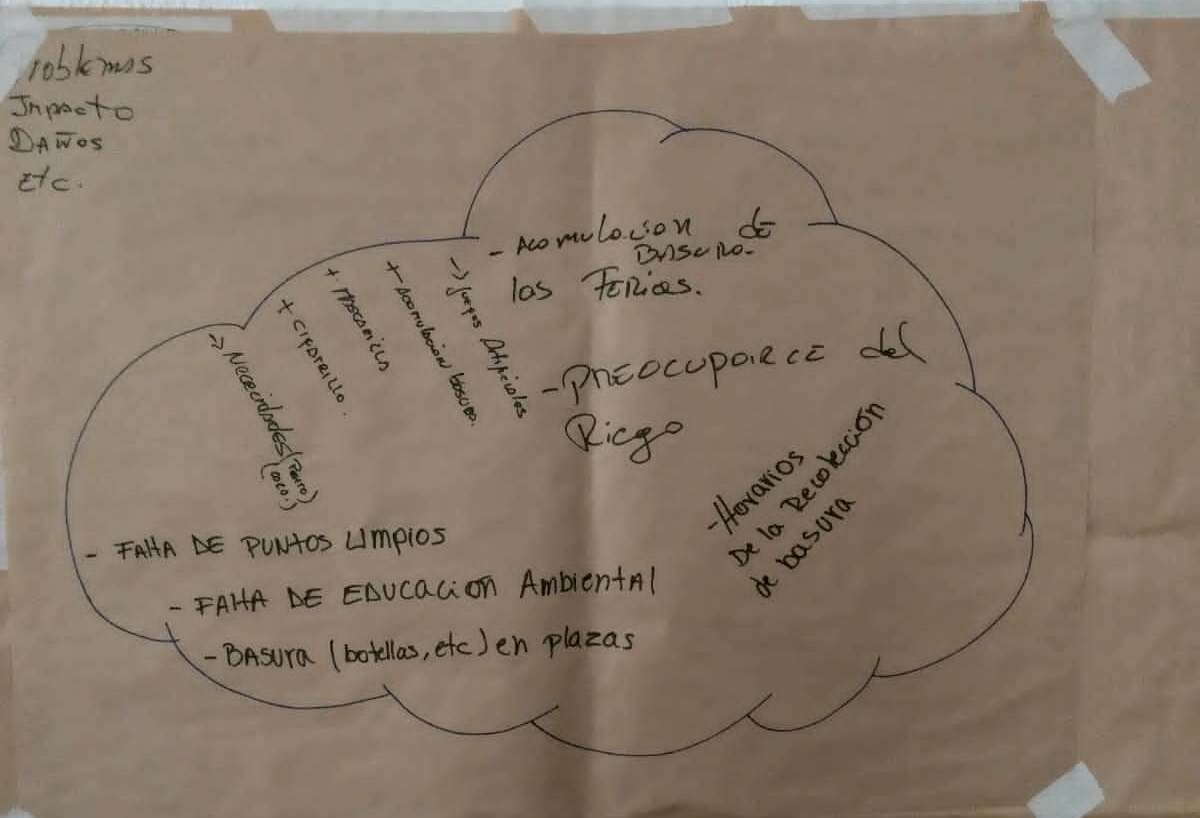 Problemas
Impacto
DAÑOS
Etc.
- Acomulacion de
BASURA
las FERIAS.
-> Juegos Artificiales
+ Acomulacion basura.
+ Mascarilla
+ CIGARRILLO.
-> Nececidades (Perro)
- PREOCUPARCE del
Riego
- Horarios
De la Recolección
de basura
- FALTA DE PUNTOS LIMPIOS
- FALTA DE EDUCACION AmbientAL
- BASURA (botellas, etc) en plazas